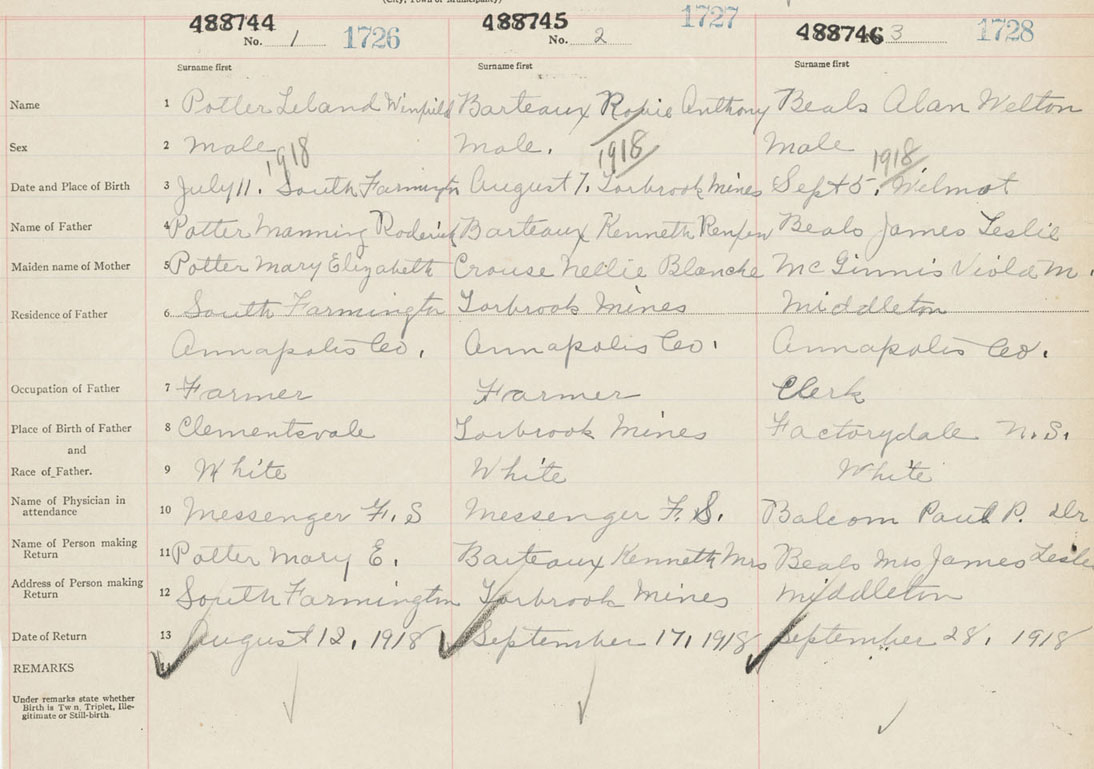 488744 488745 1727 488746
No. 1 1726 No. 2 No. 3 1728
Surname first Surname first Surname first
Name 1 Potter Leland Winfield Barteaux Anthony Beals Alan Welton
Sex 2 Male Male. Male
1918 1918 1918
Date and Place of Birth 3 July 11. South Farmington August 7. Torbrook Mines Sept 5, Wilmot
Name of Father 4 Potter Manning Roderick Barteaux Kenneth Beals James Leslie
Maiden name of Mother 5 Potter Mary Elizabeth Crouse Nellie Blanche McGinnis Viola M.
Residence of Father 6 South Farmington Torbrook Mines Middleton
Annapolis Co. Annapolis Co. Annapolis Co.
Occupation of Father 7 Farmer Farmer Clerk
Place of Birth of Father 8 Clementsvale Torbrook Mines Factorydale N.S.
and
Race of Father. 9 White White White
Name of Physician in attendance 10 Messenger F. S Messenger F. S. Balcom Paul P. Dr
Name of Person making Return 11 Potter Mary E. Barteaux Kenneth Mrs Beals Mrs James Leslie
Address of Person making Return 12 South Farmington Torbrook Mines Middleton
Date of Return 13 August 12, 1918 September 17, 1918 September 28, 1918
REMARKS
Under remarks state whether
Birth is Tw n, Triplet, Ille-
gitimate or Still-birth.